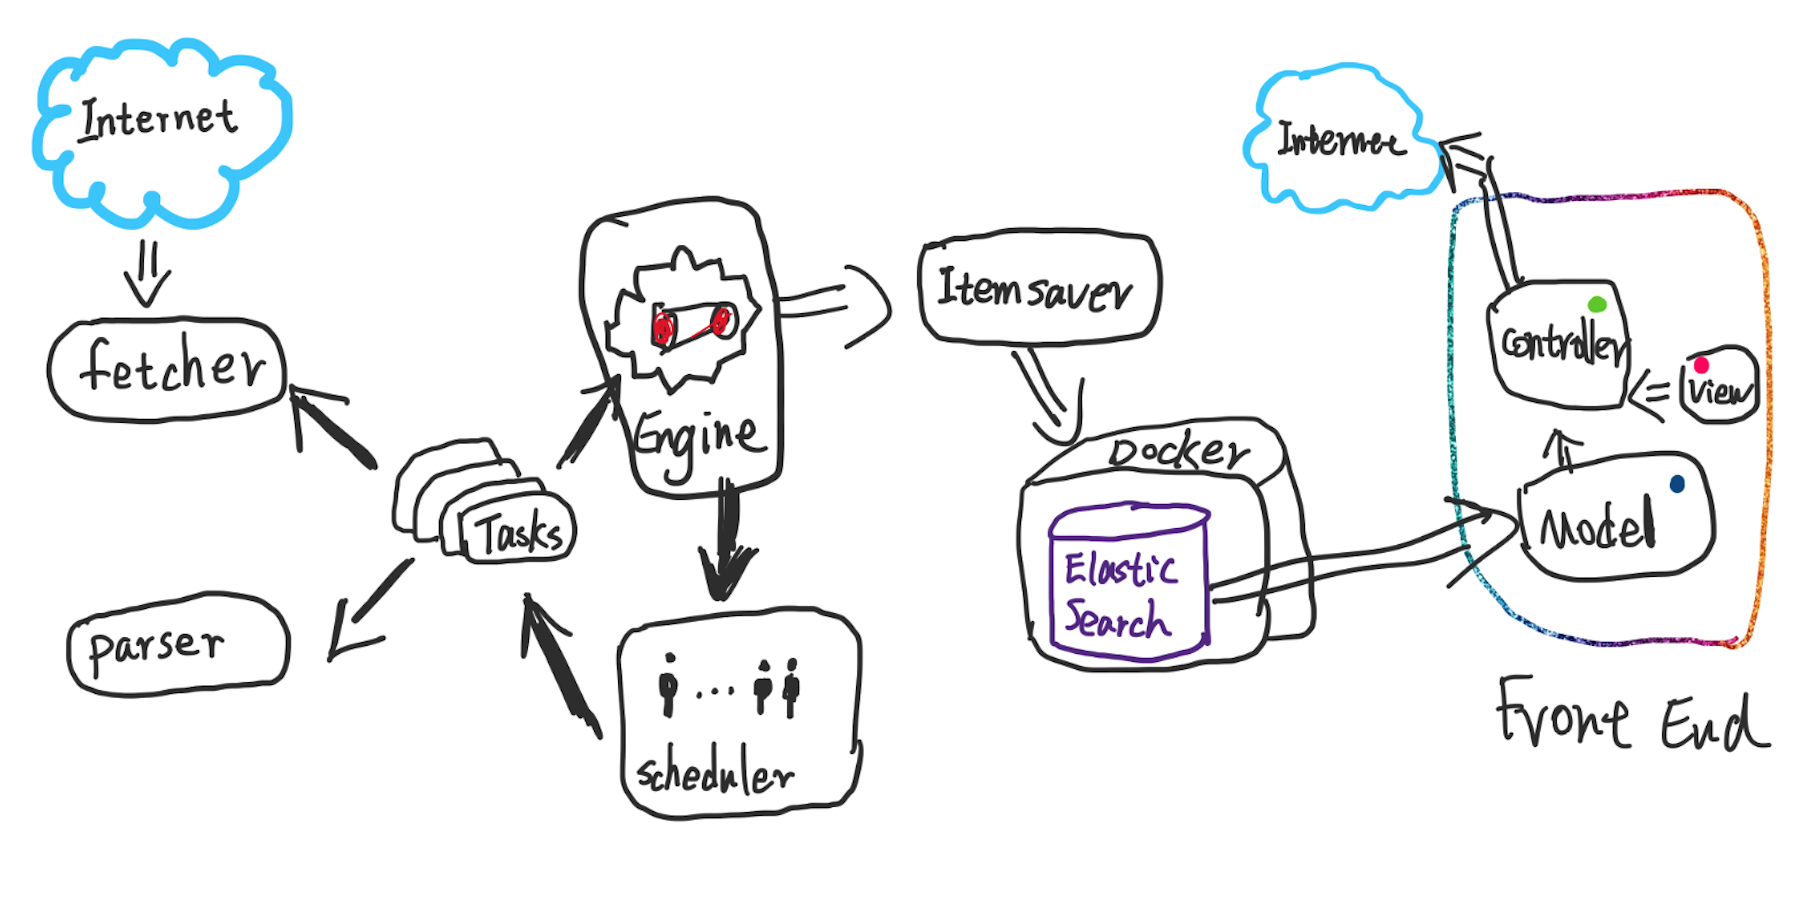 Internet
fetcher
Tasks
parser
Engine
scheduler
Itemsaver
Docker
Elastic
Search
Internet
Controller
View
Model
Front End